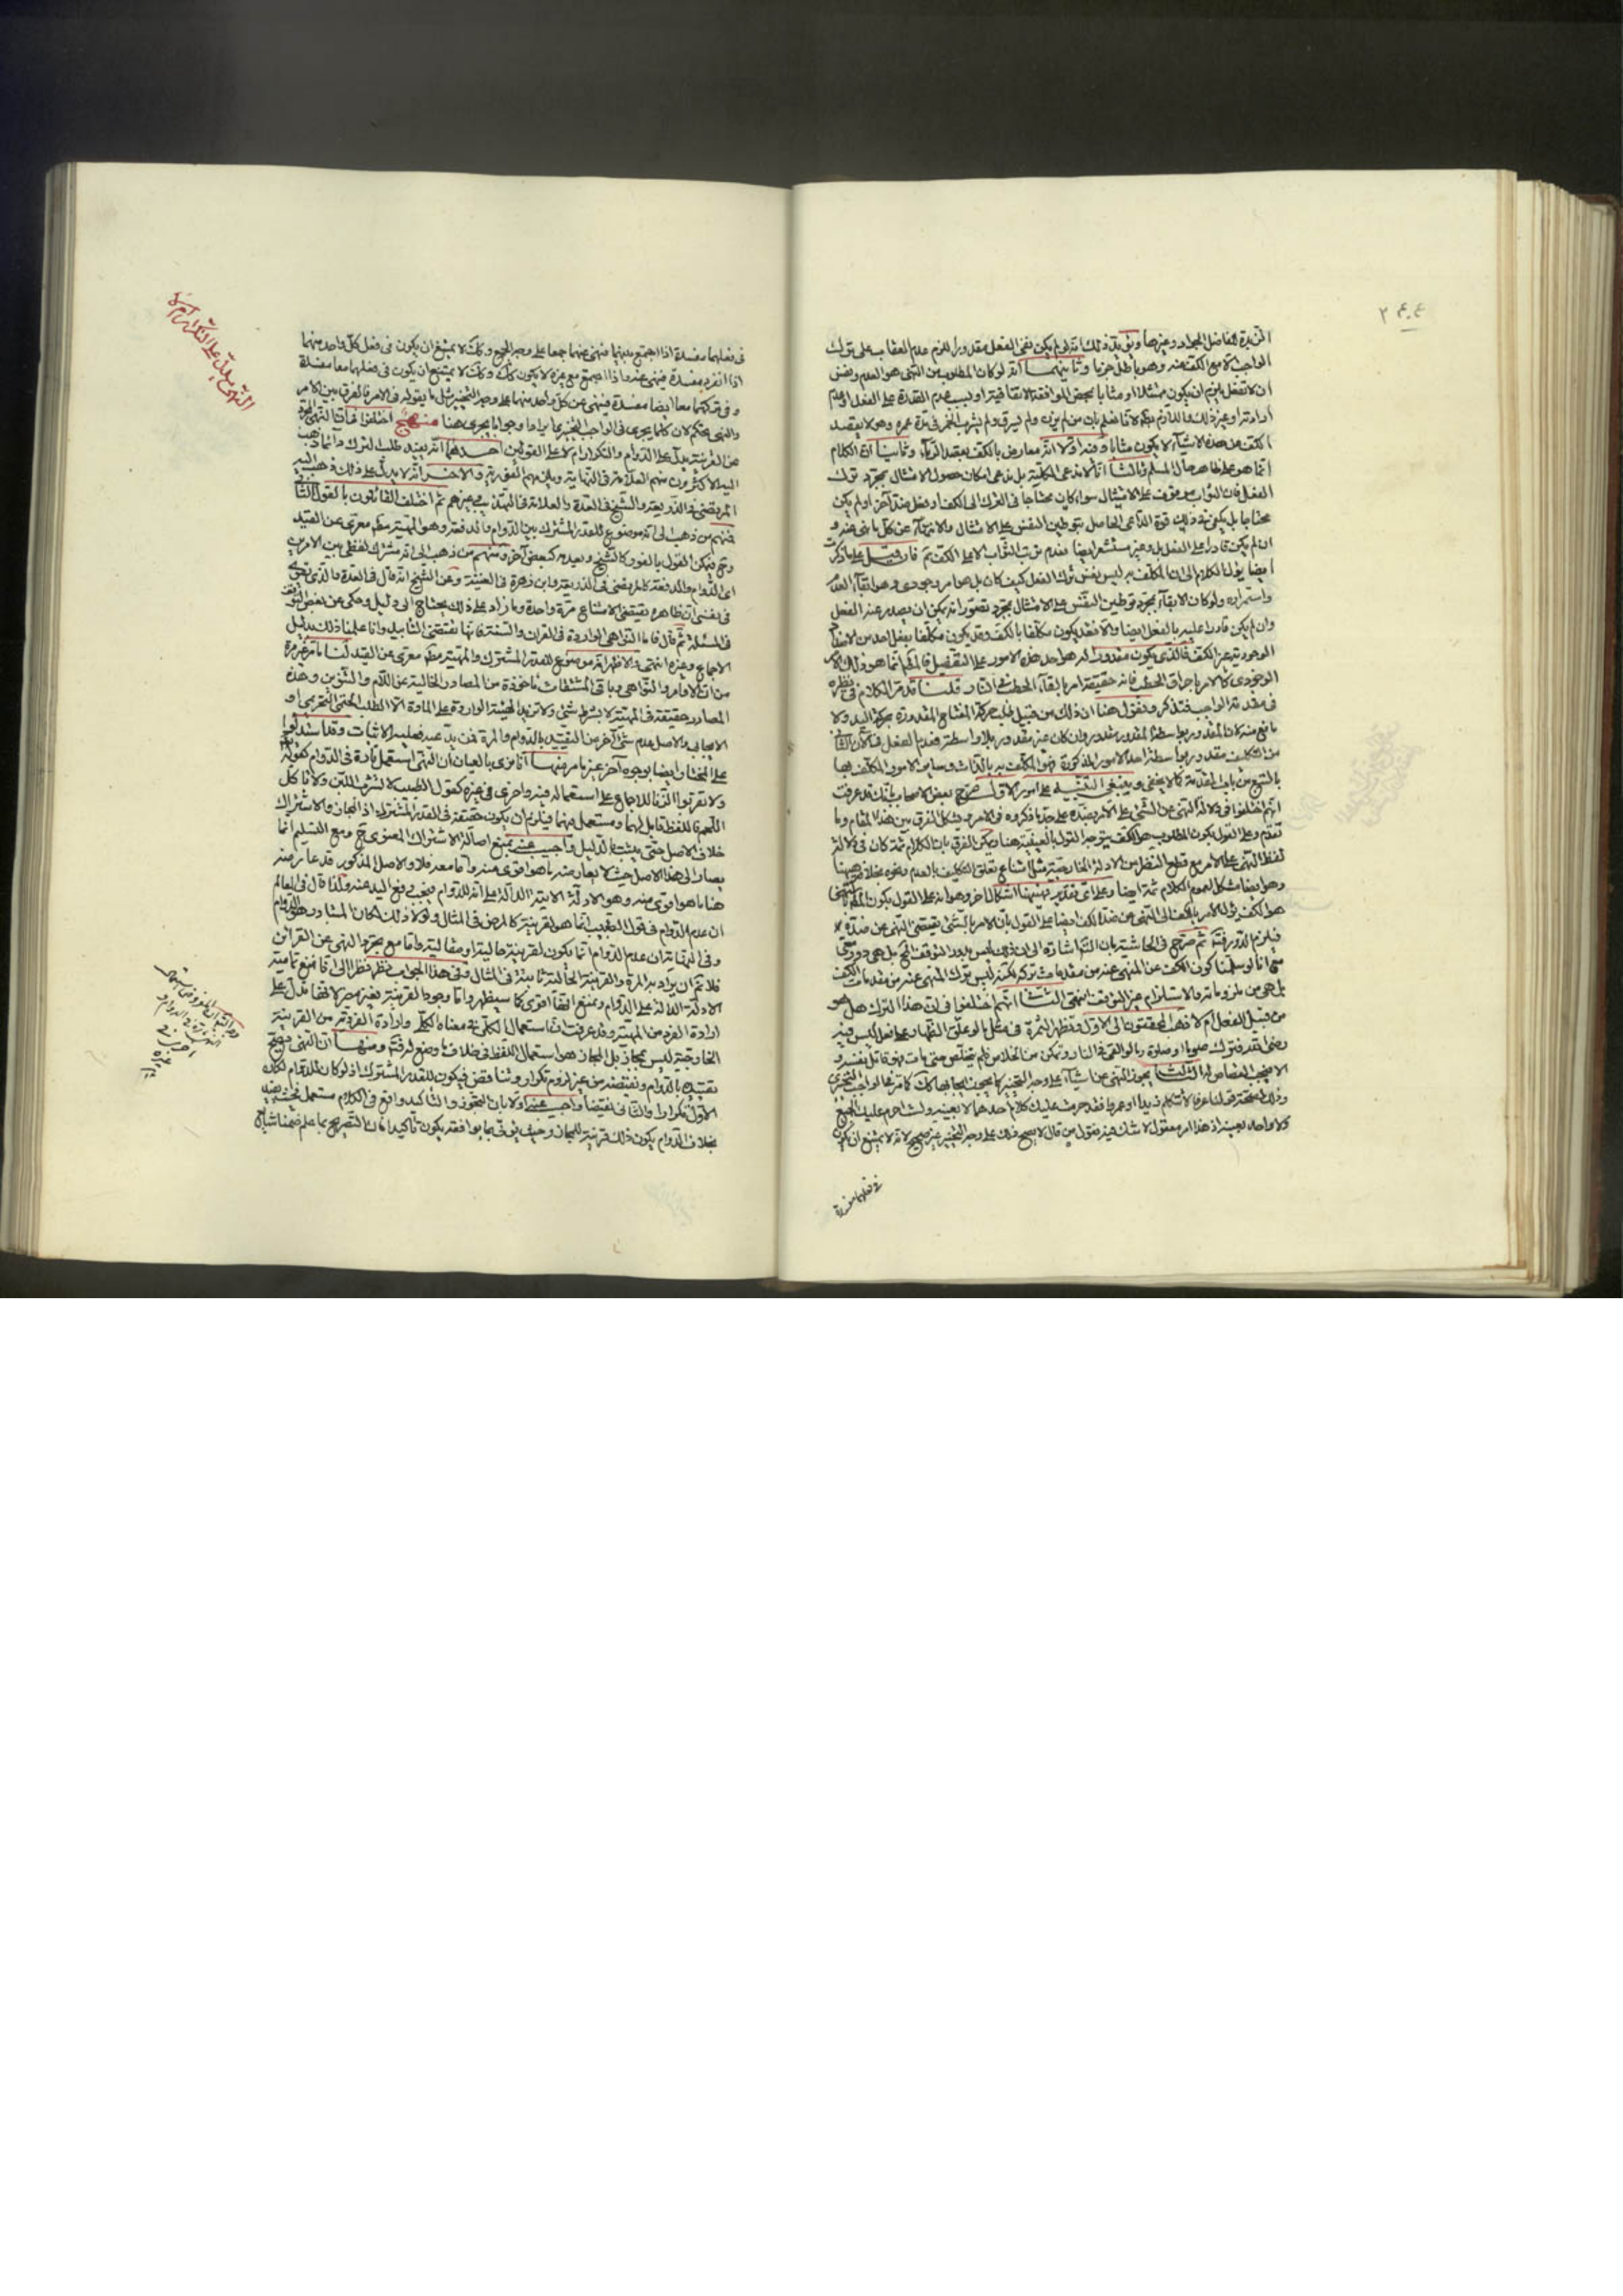 الزبدة للفاضل الجواد وغيرها ويؤيد ذلك انه لو لم يكن نفى الفعل مقدورا للزم عدم العقاب على ترك
الواجب الا مع الكف عنه وهو باطل جزما وثانيهما انه لو كان المطلوب من النهى هو العدم ونفس
ان لا تفعل يلزم ان يكون ممتثلا او مثابا بمحض الموافقة الاتفاقية او بسبب عدم القدرة على الفعل او عدم
ارادته او غير ذلك واللازم بط لانا نعلم بان من لم يزن ولم يسرق ولم يشرب الخمر فى مدة عمره وهو لا يقصد
الكف عن هذه الاشياء لا يكون مثابا وفيه اولا انه معارض بالكف بقصد الرياء وثانيا ان الكلام
انما هو على ظاهر حال المسلم وثالثا انا لا ندعى الكلية بل ندعى امكان حصول الامتثال بمجرد ترك
الفعل فان الثواب موقوف على الامتثال سواء كان محتاجا فى الترك الى الكف او فعل ضد آخر او لم يكن
محتاجا بل يكفى فى ذلك قوة الداعى الحاصل بتوطين النفس على الامتثال والانزجار عن كل ما نهى عنه و
ان لم يكن قادرا على الفعل بل وغير مستشعر ايضا فعدم ترتب الثواب الا على الكف مم فان قيل على ما ذكرت
ايضا يؤل الكلام الى ان المكلف به ليس نفس ترك الفعل كيف كان بل هو امر وجودى وهو ابقاء العدم
واستمراره ولو كان الابقاء بمجرد توطين النفس على الامتثال بمجرد تصور انه يمكن ان يصدر عنه الفعل
وان لم يكن قادرا عليه بالفعل ايضا والا فقد يكون مكلفا بالكف وقد يكون مكلفا بفعل احد من الاضداد
الوجودية غير الكف فالذى يكون مقدورا له هو احد هذه الامور على التفصيل فالحكم انما هو ذلك الامر
الوجودى كالامر باحراق الحطب فانه حقيقة امر بالقاء الحطب فى النار قلنا قد مر الكلام فى نظيره
فى مقدمة الواجب فتذكر ونقول هنا ان ذلك من قبيل طلب حركة المفتاح المقدورة بحركة اليد ولا
مانع منه لان المقدور بواسطة المقدور مقدور وان كان غير مقدور بلا واسطة فعدم الفعل فى الآن الثانى
من التكليف مقدور بواسطة احد الامور المذكورة فهو المكلف به بالذات وساير الامور المكلف بها
بالتبع من باب المقدمة كما لا يخفى وينبغى التنبيه على امور الاول صرح بعض الاصحاب بانك قد عرفت
انهم اختلفوا فى دلالة النهى عن الشئ على الامر بضده على حد ما ذكروه فى الامر ويشكل الفرق بين هذا المقام وما
تقدم وعلى القول بكون المطلوب هو الكف يتوجه القول بالعينية هنا ويمكن الفرق بان الكلام ثمة كان فى دلالة
لفظ النهى على الامر مع قطع النظر من الادلة الخارجية مثل امتناع تعلق التكليف بالعدم ونحوه بخلافه هيهنا
وهو ايضا مشكل لعموم الكلام ثمة ايضا وعلى اى تقدير فهيهنا اشكال اخر وهو انه على القول بكون المطلوب بالنهى
هو الكف يؤل الامر بالكف الى النهى عن ضد الكف ايضا على القول بان الامر بالشئ يقتضى النهى عن ضده
فيلزم الدور فتأمل ثم صرح فى الحاشية بان التأمل اشارة الى ان ذلك ليس بدور التوقف المح بل هى دور معى
مع انا لو سلمنا كون الكف عن المنهى عنه من مقدمات تركه لكنه ليس ترك المنهى عنه من مقدمات الكف
بل هى من ملزوماته والاستلزام غير التوقف انتهى الثانى انهم اختلفوا فى ان هذا الترك هل هو
من قبيل الفعل ام لا فذهب المحققون الى الاول وتظهر الثمرة فى مثل ما لو علق الظهار على فعل ليس فيه
رضى الله فترك صوما او صلوة وما لو القى فى النار وتمكن من الخلاص فلم يتخلص حتى مات فهو قاتل نفسه و
الا فيجب القصاص له الثالث يجوز النهى عن اشياء على وجه التخيير كما يجوز ايجابها كك كما مر فى الواجب التخييرى
وذلك مثل قولنا عرفا لا تكلم زيدا او عمروا فقد حرمت عليك كلام احدهما لا بعينه ولست احرم عليك الجميع
ولا واحدا بعينه اذ هذا امر معقول لا شك فيه فقول من قال لا يصح ذلك على وجه التخيير غير صحيح لانه لا يمتنع ان يكون
فى فعلهما مفسدة
فى فعلهما مفسدة اذا اجتمع بينهما فنهى عنهما جمعا على وجه الجمع وكك لا يمتنع ان يكون فى فعل كل واحد منهما
اذا انفرد مفسدة فينهى عنه واذا اجتمع مع غيره لا يكون كك وكك لا يمتنع ان يكون فى فعلهما معا مفسدة
وفى تركهما معا ايضا مفسدة فينهى عن كل واحد منهما على وجه التخيير مثل ما يقوله فى الامر فالفرق بين الامر
والنهى تحكم لان كلما يجرى فى الواجب التخييرى ايرادا وجوابا يجرى هنا منهج اختلفوا فى ان النهى المجرد
عن القرينة يدل على الدوام والتكرار ام لا على القولين احدهما انه يفيد طلب الترك دائما ذهب
اليه الاكثرون منهم العلامة فى النهاية والاخر انه لا يدل على ذلك ذهب اليه
المرتضى فى الذريعة والشيخ فى العدة والعلامة فى التهذيب وغيرهم ثم اختلف القائلون بالقول الثانى
فمنهم من ذهب الى انه موضوع للقدر المشترك بين الدوام والدفعة وهو المهية مط معرى عن القيد
ومنهم من ذهب الى انه مشترك لفظى بين الامرين
اى الدوام والدفعة كالمرتضى فى الذريعة وابن زهرة فى الغنية وعن الشيخ انه قال فى العدة والذى يقوى
فى نفسى ان ظاهره يقتضى الامتناع مرة واحدة وما زاد على ذلك يحتاج الى دليل وحكى عن بعض التوقف
فى المسئلة ثم قال فاما النواهى الواردة فى القران والسنة فانها تقتضى التأبيد وانا علمنا ذلك بدليل
الاجماع وغيره انتهى والاظهر انه موضوع للقدر المشترك والمهية مط معرى عن القيد لنا ما مر غير مرة
من ان الاوامر والنواهى وباقى المشتقات مأخوذة من المصادر الخالية عن اللام والتنوين وهذه
المصادر حقيقة فى المهية لا بشرط شئ ولا تزيد الهيئة الواردة على المادة الا الطلب الحتمى التحريمى او
الايجابى والاصل عدم شئ آخر من التقييد بالدوام والمرة فمن يدعيه فعليه الاثبات وقد استدلوا
على المختار ايضا بوجوه آخر غير ما مر منها انا نرى بالعيان ان النهى استعمل تارة فى الدوام كقوله تعالى
ولا تقربوا الزنا للاجماع على استعماله فيه واخرى فى غيره كقول الطبيب لا تشرب اللبن ولا تأكل
اللحم فاللفظ قابل لهما ومستعمل فيهما فيلزم ان يكون حقيقة فى القدر المشترك اذ المجاز والاشتراك
خلاف الاصل حتى يثبت الدليل واجيب عنه بمنع اصالة الاشتراك المعنوى ح ومع التسليم انما
يصار الى هذا الاصل حيث لا يعارضه ما هو اقوى منه واما معه فلا والاصل المذكور قد عارضه
هنا ما هو اقوى منه وهو الادلة الاتية الدالة على انه للدوام فيجب رفع اليد عنه ولذا قال فى المعالم
ان عدم الدوام فى قول الطبيب انما هو لقرينة كالمرض فى المثال ولولا ذلك لكان المتبادر هو الدوام
وفى النهاية ان عدم الدوام انما يكون لقرينة حالية او مقالية واما مع تجرد النهى عن القرائن
فلا ثم ان يراد به المرة والقرينة الحالية ثابتة فى المثال وفى هذا الجواب نظر نظرا الى انا نمنع تمامية
الادلة الدالة على الدوام ونمنع انها اقوى كما سيظهر واما وجود القرينة فغير مضر لانها تدل على
ارادة الفرد من المهية وقد عرفت ان استعمال الكلى فى معناه الكلى وارادة الفردية من القرينة
الخارجية ليس بمجاز بل المجاز هو استعمال اللفظ فى خلاف ما وضع له فتأمل ومنها ان النهى يصح
تقييده بالدوام ونقيضه من غير لزوم تكرار وتناقض فيكون للقدر المشترك اذ لو كان للدوام لكان
الاول تكرارا والثانى نقيضا واجيب عنه اولا بان التجوز والتأكيد واقع فى الكلام مستعمل فحيث يقيد
بخلاف الدوام يكون ذلك قرينة للمجاز وحيث يؤتى بما يوافقه يكون تأكيدا
النهى يدل على التكرار ام لا